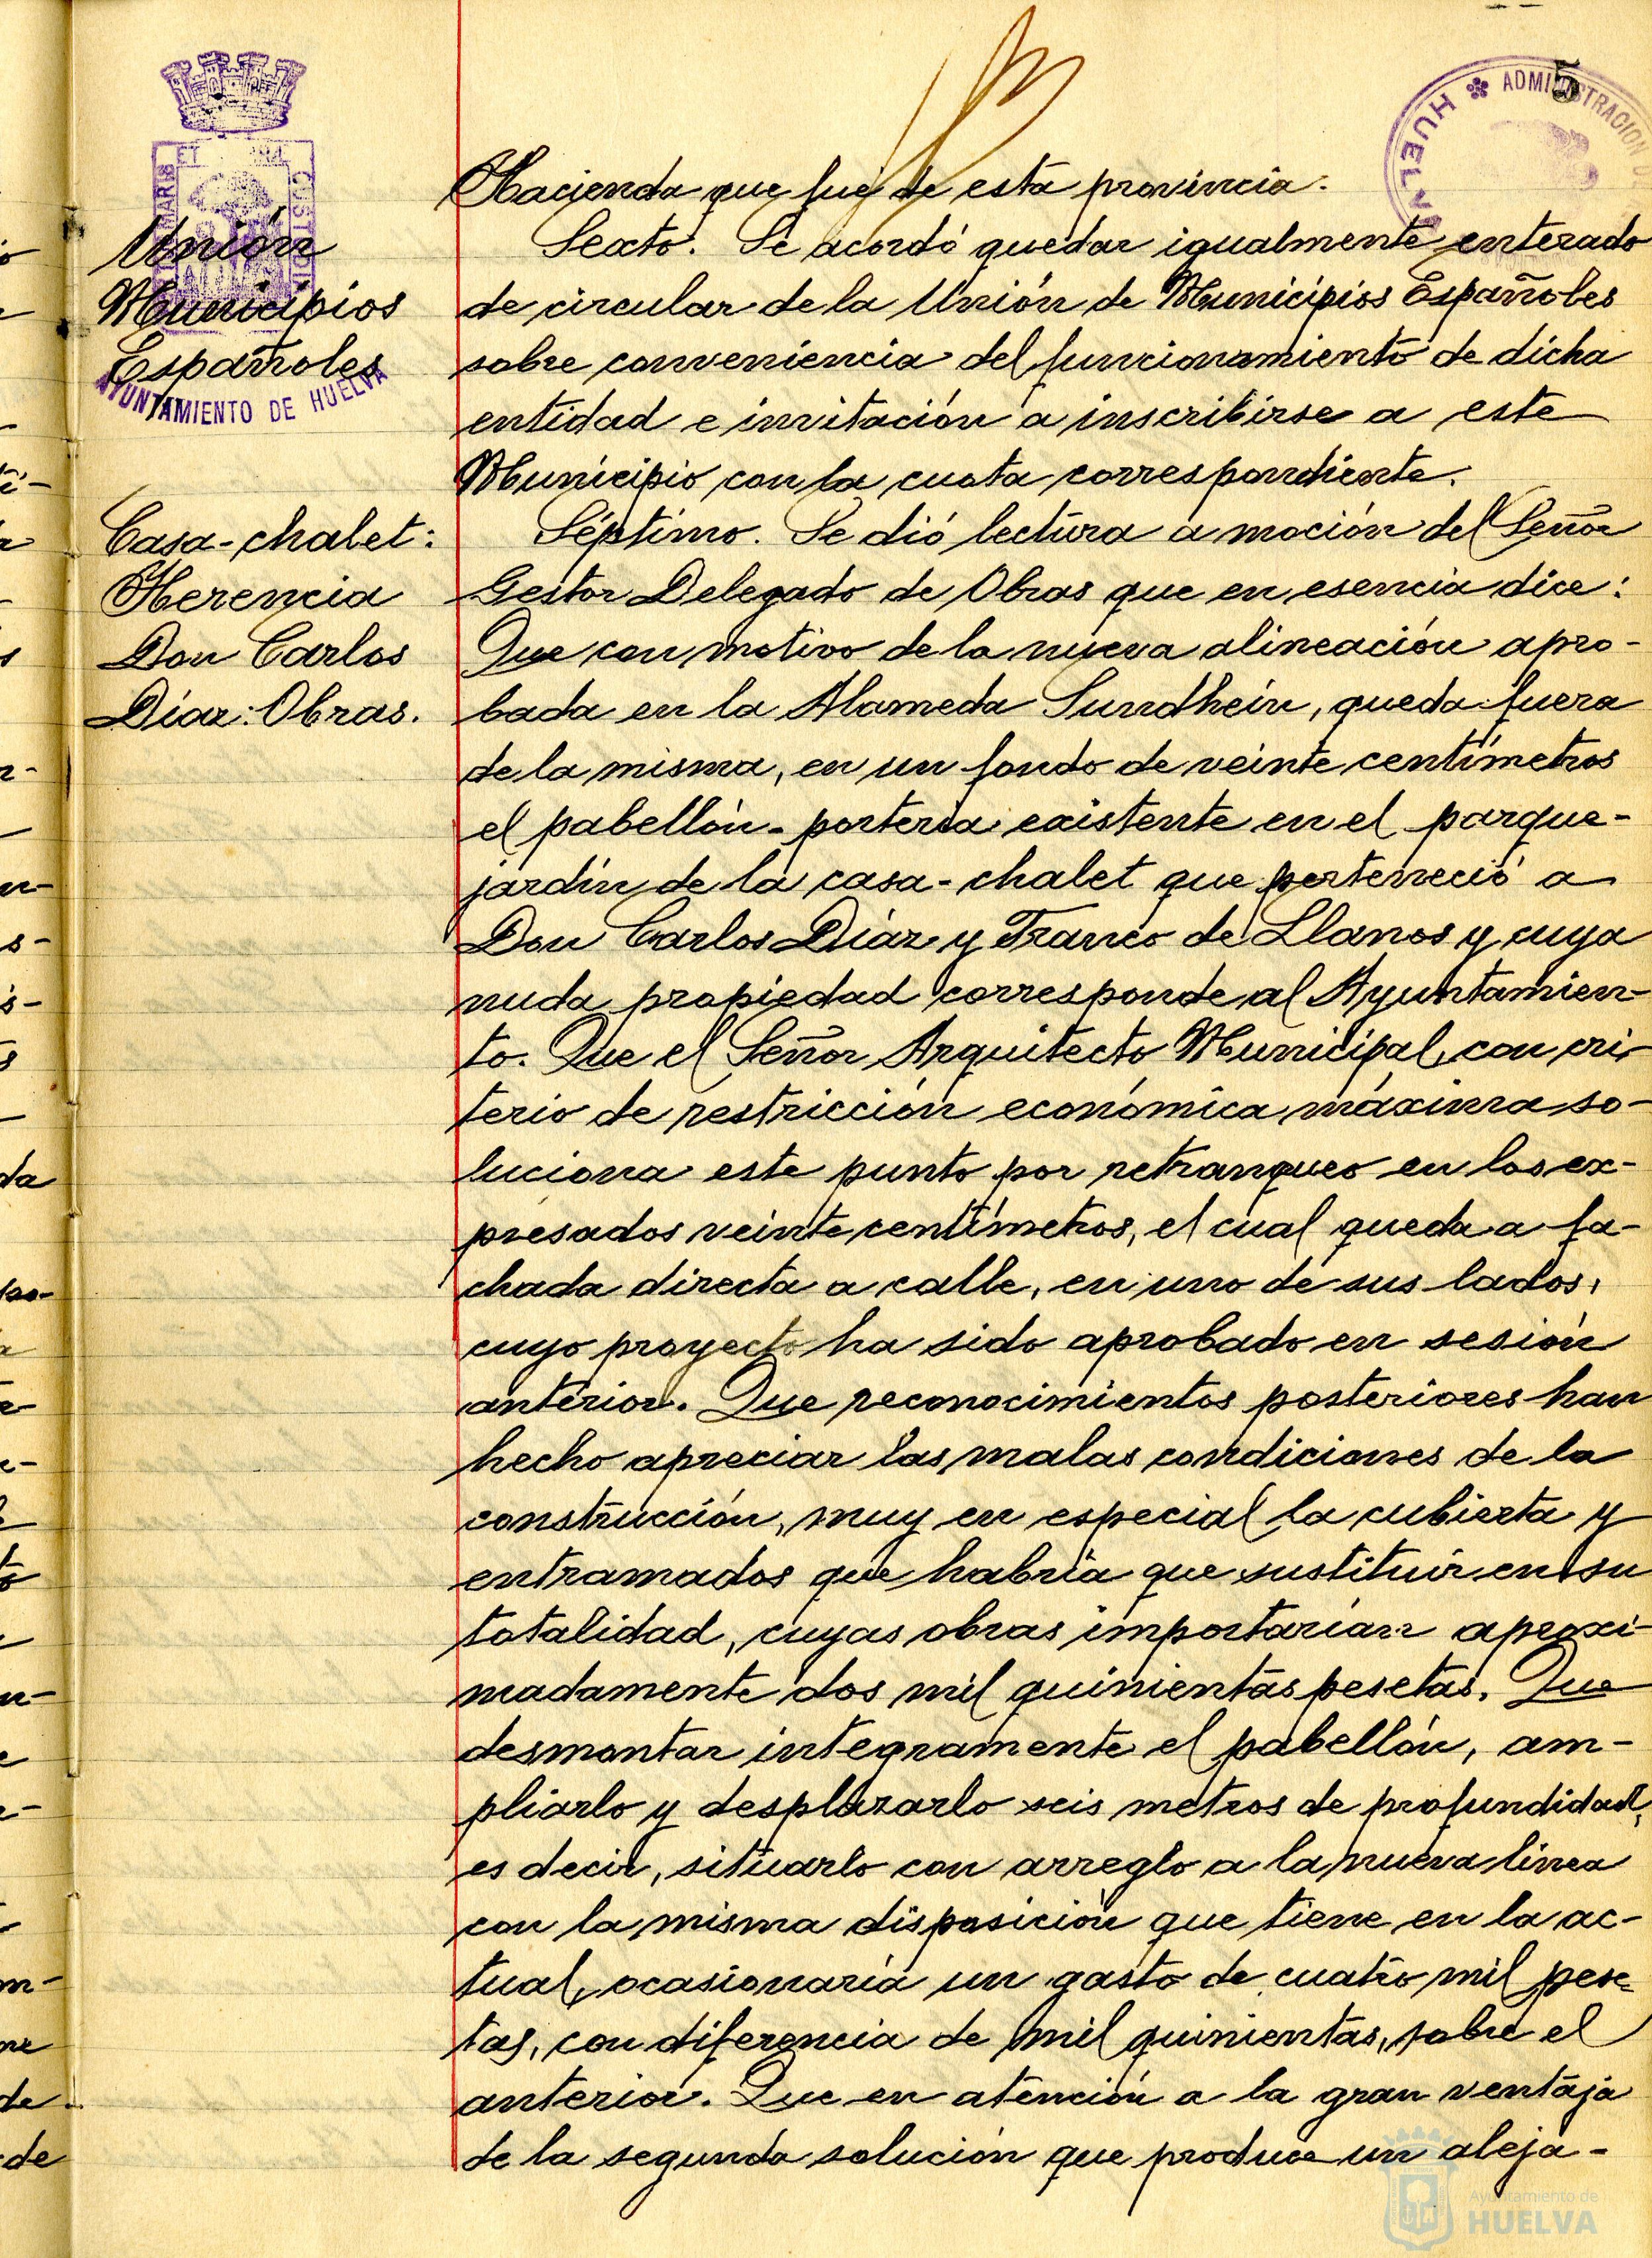 5
HUELVA * ADMINISTRACION
Hacienda que fué de esta provincia.
Unión
Municipios
Españoles
AYUNTAMIENTO DE HUELVA
Sexto. Se acordó quedar igualmente enterado
de circular de la Unión de Municipios Españoles
sobre conveniencia del funcionamiento de dicha
entidad e invitación a inscribirse a este
Municipio con la cuota correspondiente.
Casa-chalet:
Herencia
Don Carlos
Díaz: Obras.
Séptimo. Se dió lectura a moción del Señor
Gestor Delegado de Obras que en esencia dice:
Que con motivo de la nueva alineación apro-
bada en la Alameda Sundhein, queda fuera
de la misma, en un fondo de veinte centímetros
el pabellón-portería existente en el parque-
jardín de la casa-chalet que perteneció a
Don Carlos Díaz y Franco de Llanos y cuya
nuda propiedad corresponde al Ayuntamien-
to. Que el Señor Arquitecto Municipal, con cri-
terio de restricción económica máxima so-
luciona este punto por retranqueo en los ex-
presados veinte centímetros, el cual queda a fa-
chada directa a calle, en uno de sus lados,
cuyo proyecto ha sido aprobado en sesión
anterior. Que reconocimientos posteriores han
hecho apreciar las malas condiciones de la
construcción, muy en especial la cubierta y
entramados que habría que sustituir en su
totalidad, cuyas obras importarían aproxi-
madamente dos mil quinientas pesetas. Que
desmontar integramente el pabellón, am-
pliarlo y desplazarlo seis metros de profundidad,
es decir, situarlo con arreglo a la nueva línea
con la misma disposición que tiene en la ac-
tual, ocasionaría un gasto de cuatro mil pese-
tas, con diferencia de mil quinientas, sobre el
anterior. Que en atención a la gran ventaja
de la segunda solución que produce un aleja-
Ayuntamiento de
HUELVA